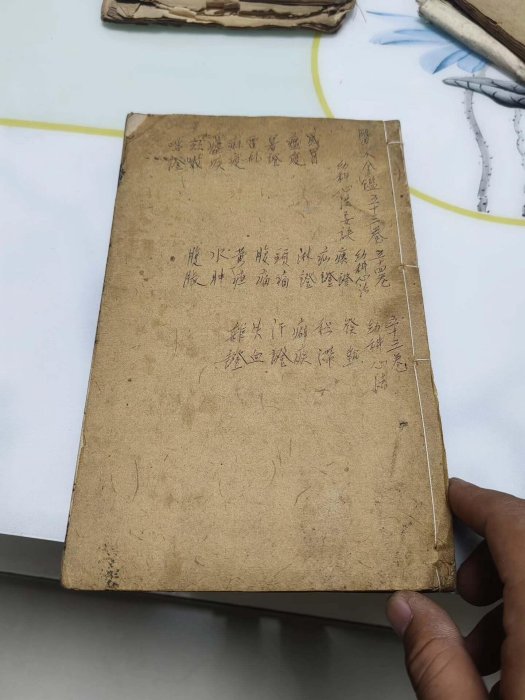 金鑑五十三卷
幼科心法要訣
感冒
瘟疫
暑證
霍乱
瘧疾
咳嗽
喘證
五十四卷
幼科心法
痰證
疝證
淋證
頭痛
腹痛
黄疸
水肿
腹脹
幼科心法
發熱
積滯
癖疾
汗證
失血
雜證